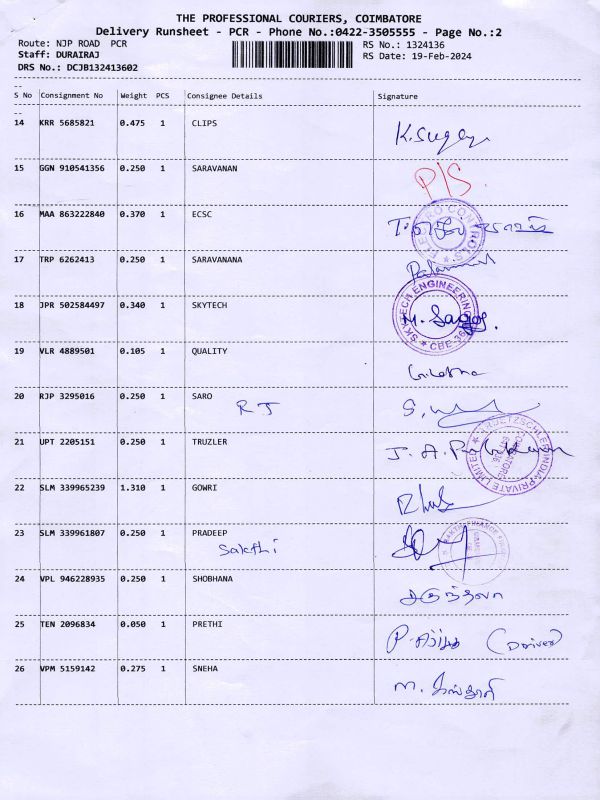 THE PROFESSIONAL COURIERS, COIMBATORE
Delivery Runsheet - PCR - Phone No.:0422-3505555 - Page No.:2
Route: NJP ROAD PCR
RS No.: 1324136
Staff: DURAIRAJ
RS Date: 19-Feb-2024
DRS No.: DCJB132413602
S No Consignment No Weight PCS Consignee Details Signature
14 KRR 5685821 0.475 1 CLIPS
15 GGN 910541356 0.250 1 SARAVANAN P/S.
16 MAA 863222840 0.370 1 ECSC
ELECTRO CONTROLS
17 TRP 6262413 0.250 1 SARAVANANA
18 JPR 502584497 0.340 1 SKYTECH
SKYTECH ENGINEERING
CBE
19 VLR 4889501 0.105 1 QUALITY
20 RJP 3295016 0.250 1 SARO
RJ
21 UPT 2205151 0.250 1 TRUZLER
INDIA PRIVATE LIMITED
22 SLM 339965239 1.310 1 GOWRI
23 SLM 339961807 0.250 1 PRADEEP
Sakthi
24 VPL 946228935 0.250 1 SHOBHANA
25 TEN 2096834 0.050 1 PRETHI (Driver)
26 VPM 5159142 0.275 1 SNEHA